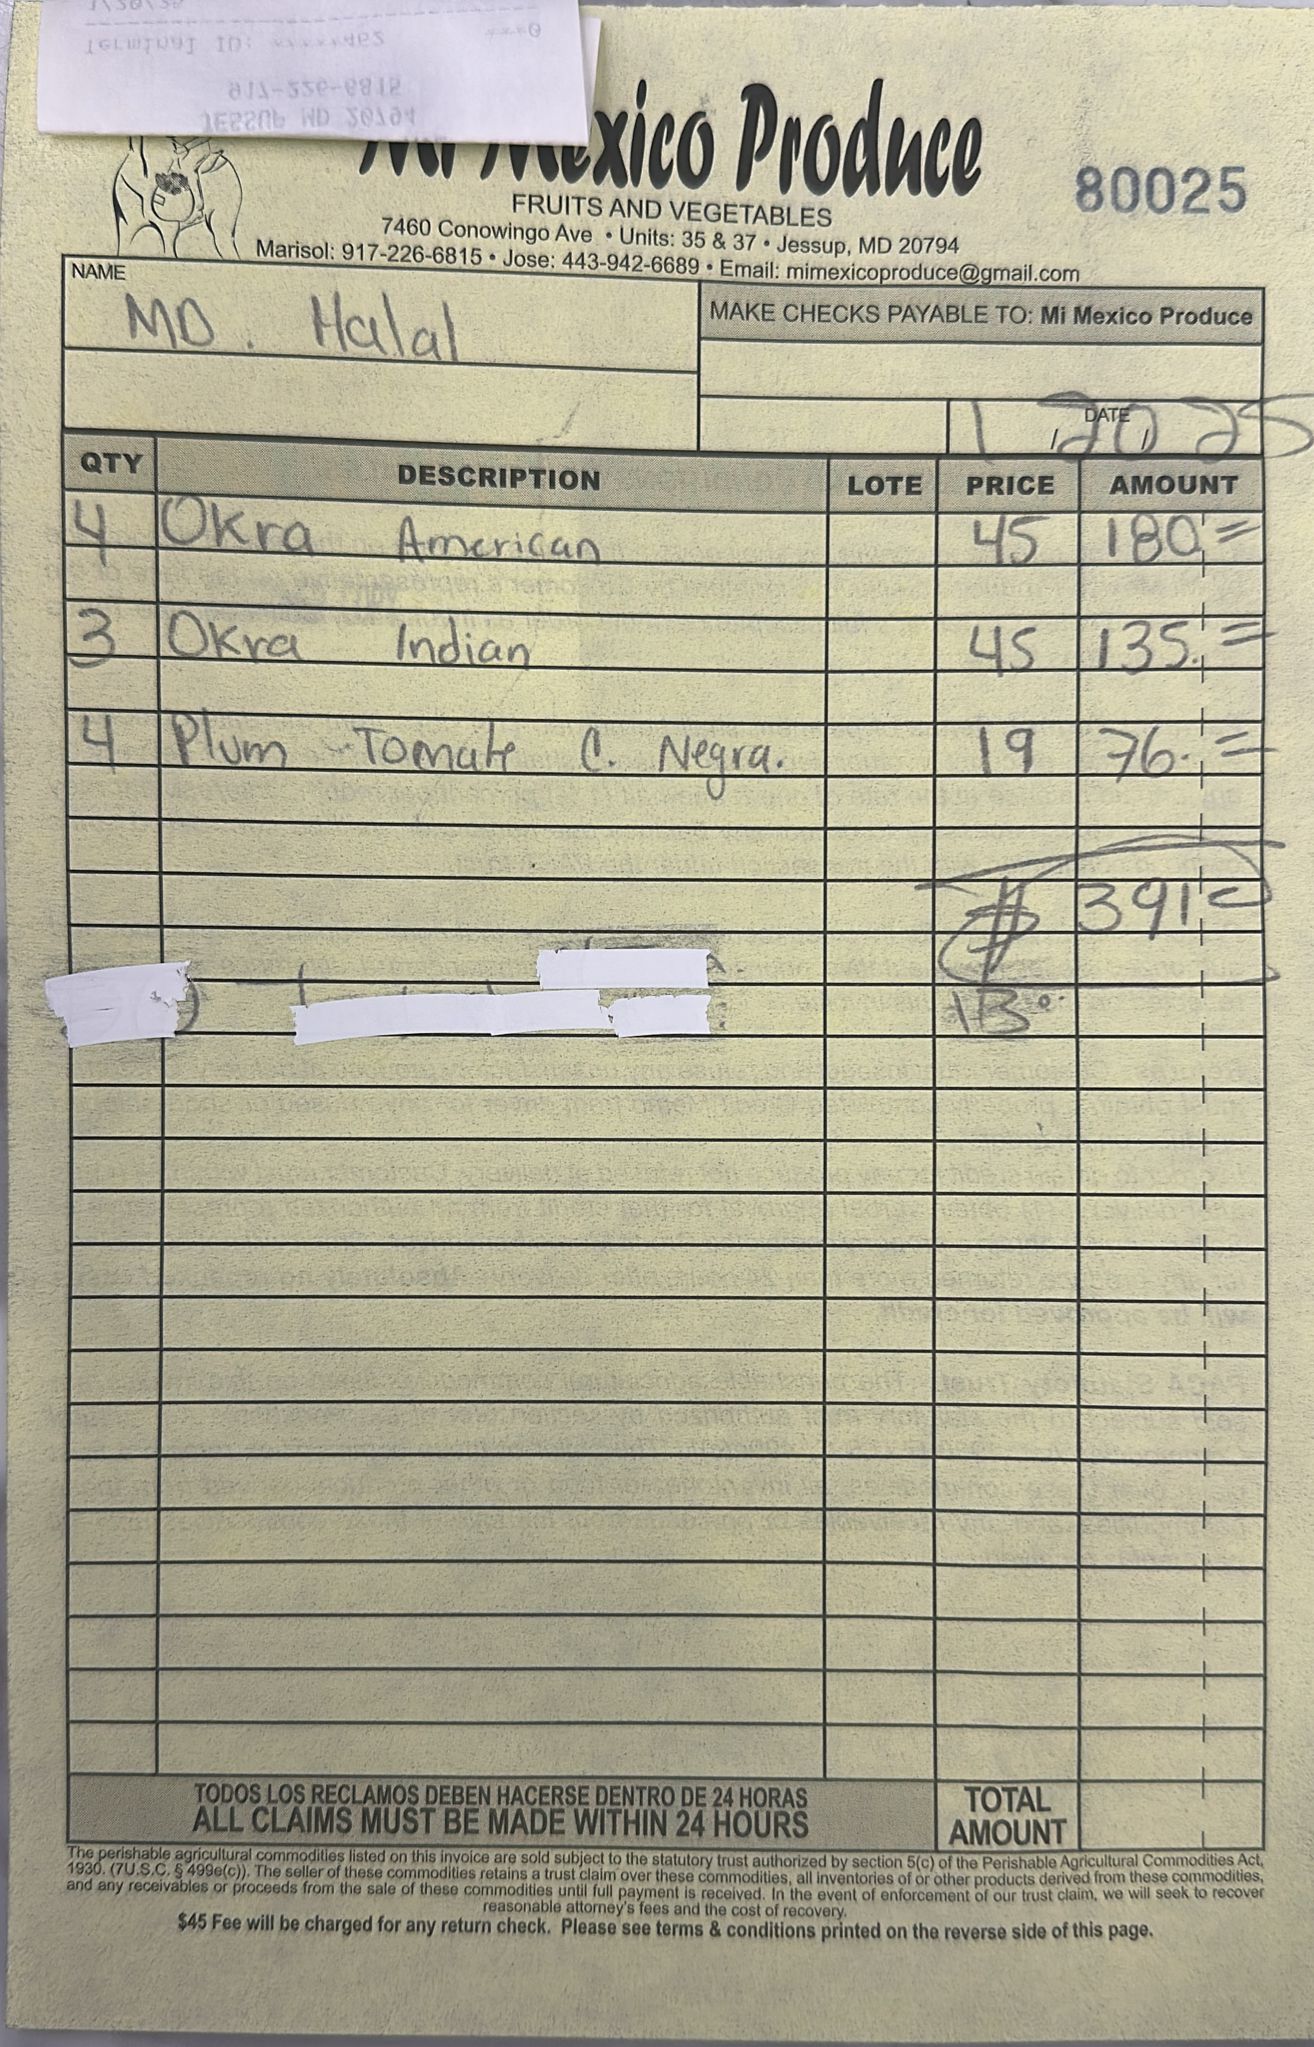 1/20/25
Terminal ID: *****462 ***0
917-226-6815
JESSUP MD 20794
Mi Mexico Produce
80025
FRUITS AND VEGETABLES
7460 Conowingo Ave • Units: 35 & 37 • Jessup, MD 20794
Marisol: 917-226-6815 • Jose: 443-942-6689 • Email: mimexicoproduce@gmail.com
NAME
MD. Halal
MAKE CHECKS PAYABLE TO: Mi Mexico Produce
DATE
1 / 20 / 25
QTY DESCRIPTION LOTE PRICE AMOUNT
4 Okra American 45 180.=
3 Okra Indian 45 135.=
4 Plum Tomate C. Negra. 19 76.=
$ 391=
13
TODOS LOS RECLAMOS DEBEN HACERSE DENTRO DE 24 HORAS
ALL CLAIMS MUST BE MADE WITHIN 24 HOURS
TOTAL
AMOUNT
The perishable agricultural commodities listed on this invoice are sold subject to the statutory trust authorized by section 5(c) of the Perishable Agricultural Commodities Act,
1930. (7U.S.C. § 499e(c)). The seller of these commodities retains a trust claim over these commodities, all inventories of or other products derived from these commodities,
and any receivables or proceeds from the sale of these commodities until full payment is received. In the event of enforcement of our trust claim, we will seek to recover
reasonable attorney's fees and the cost of recovery.
$45 Fee will be charged for any return check. Please see terms & conditions printed on the reverse side of this page.